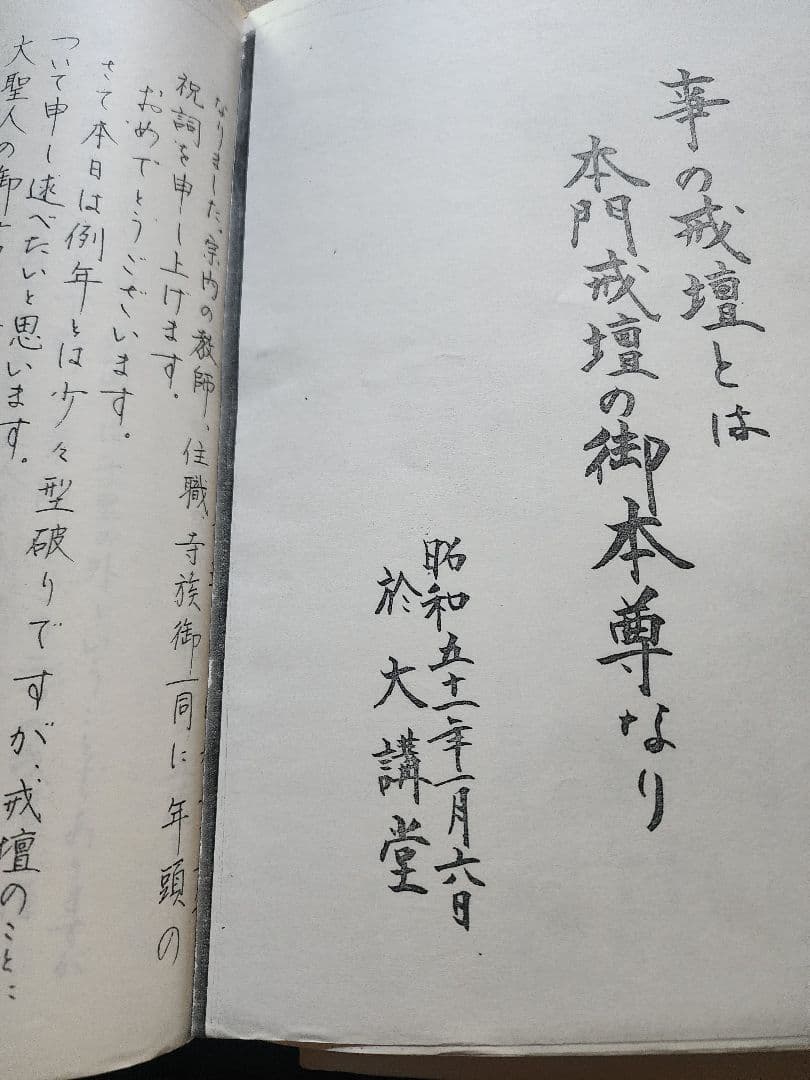 事の戒壇とは
本門戒壇の御本尊なり
昭和五十一年一月六日
於大講堂
なりました。宗内の教師、住職、寺族御一同に年頭の
祝詞を申し上げます。
おめでとうございます。
さて本日は例年とは少々型破りですが、戒壇のことに
ついて申し述べたいと思います。
大聖人の御